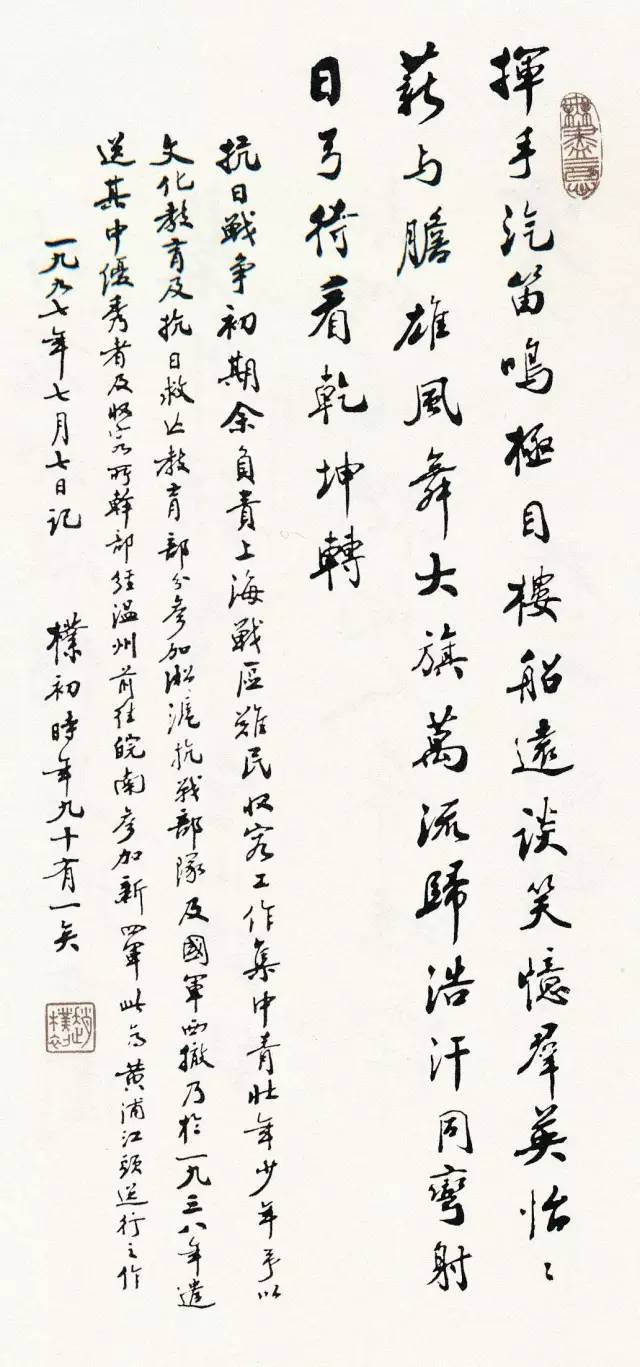 無盡意
揮手汽笛鳴極目樓船遠談笑憶羣英怡〻
薪与膽雄風舞大旗萬流歸浩汗同彎射
日弓待看乾坤轉
抗日戰争初期余負責上海戰區難民收容工作集中青壯年少年予以
文化教育及抗日救亡教育部分參加淞滬抗戰部隊及國軍西撤乃於一九三八年遣
送其中優秀者及收容所幹部經温州前往皖南參加新四軍此為黄浦江頭送行之作
一九九七年七月七日記 樸初時年九十有一矣
趙樸初